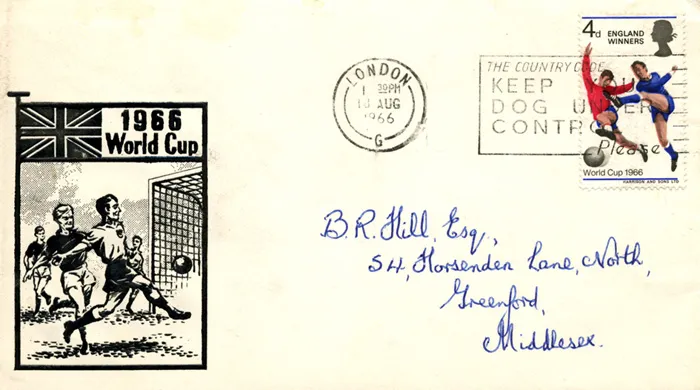 4d ENGLAND
WINNERS
LONDON
30PM
AUG
1966
G
THE COUNTRY CODE
KEEP
DOG UNDER
CONTROL
Please
World Cup 1966
HARRISON AND SONS LTD
1966
World Cup
B. R. Hill, Esq.,
54, Horsenden Lane, North,
Greenford,
Middlesex.